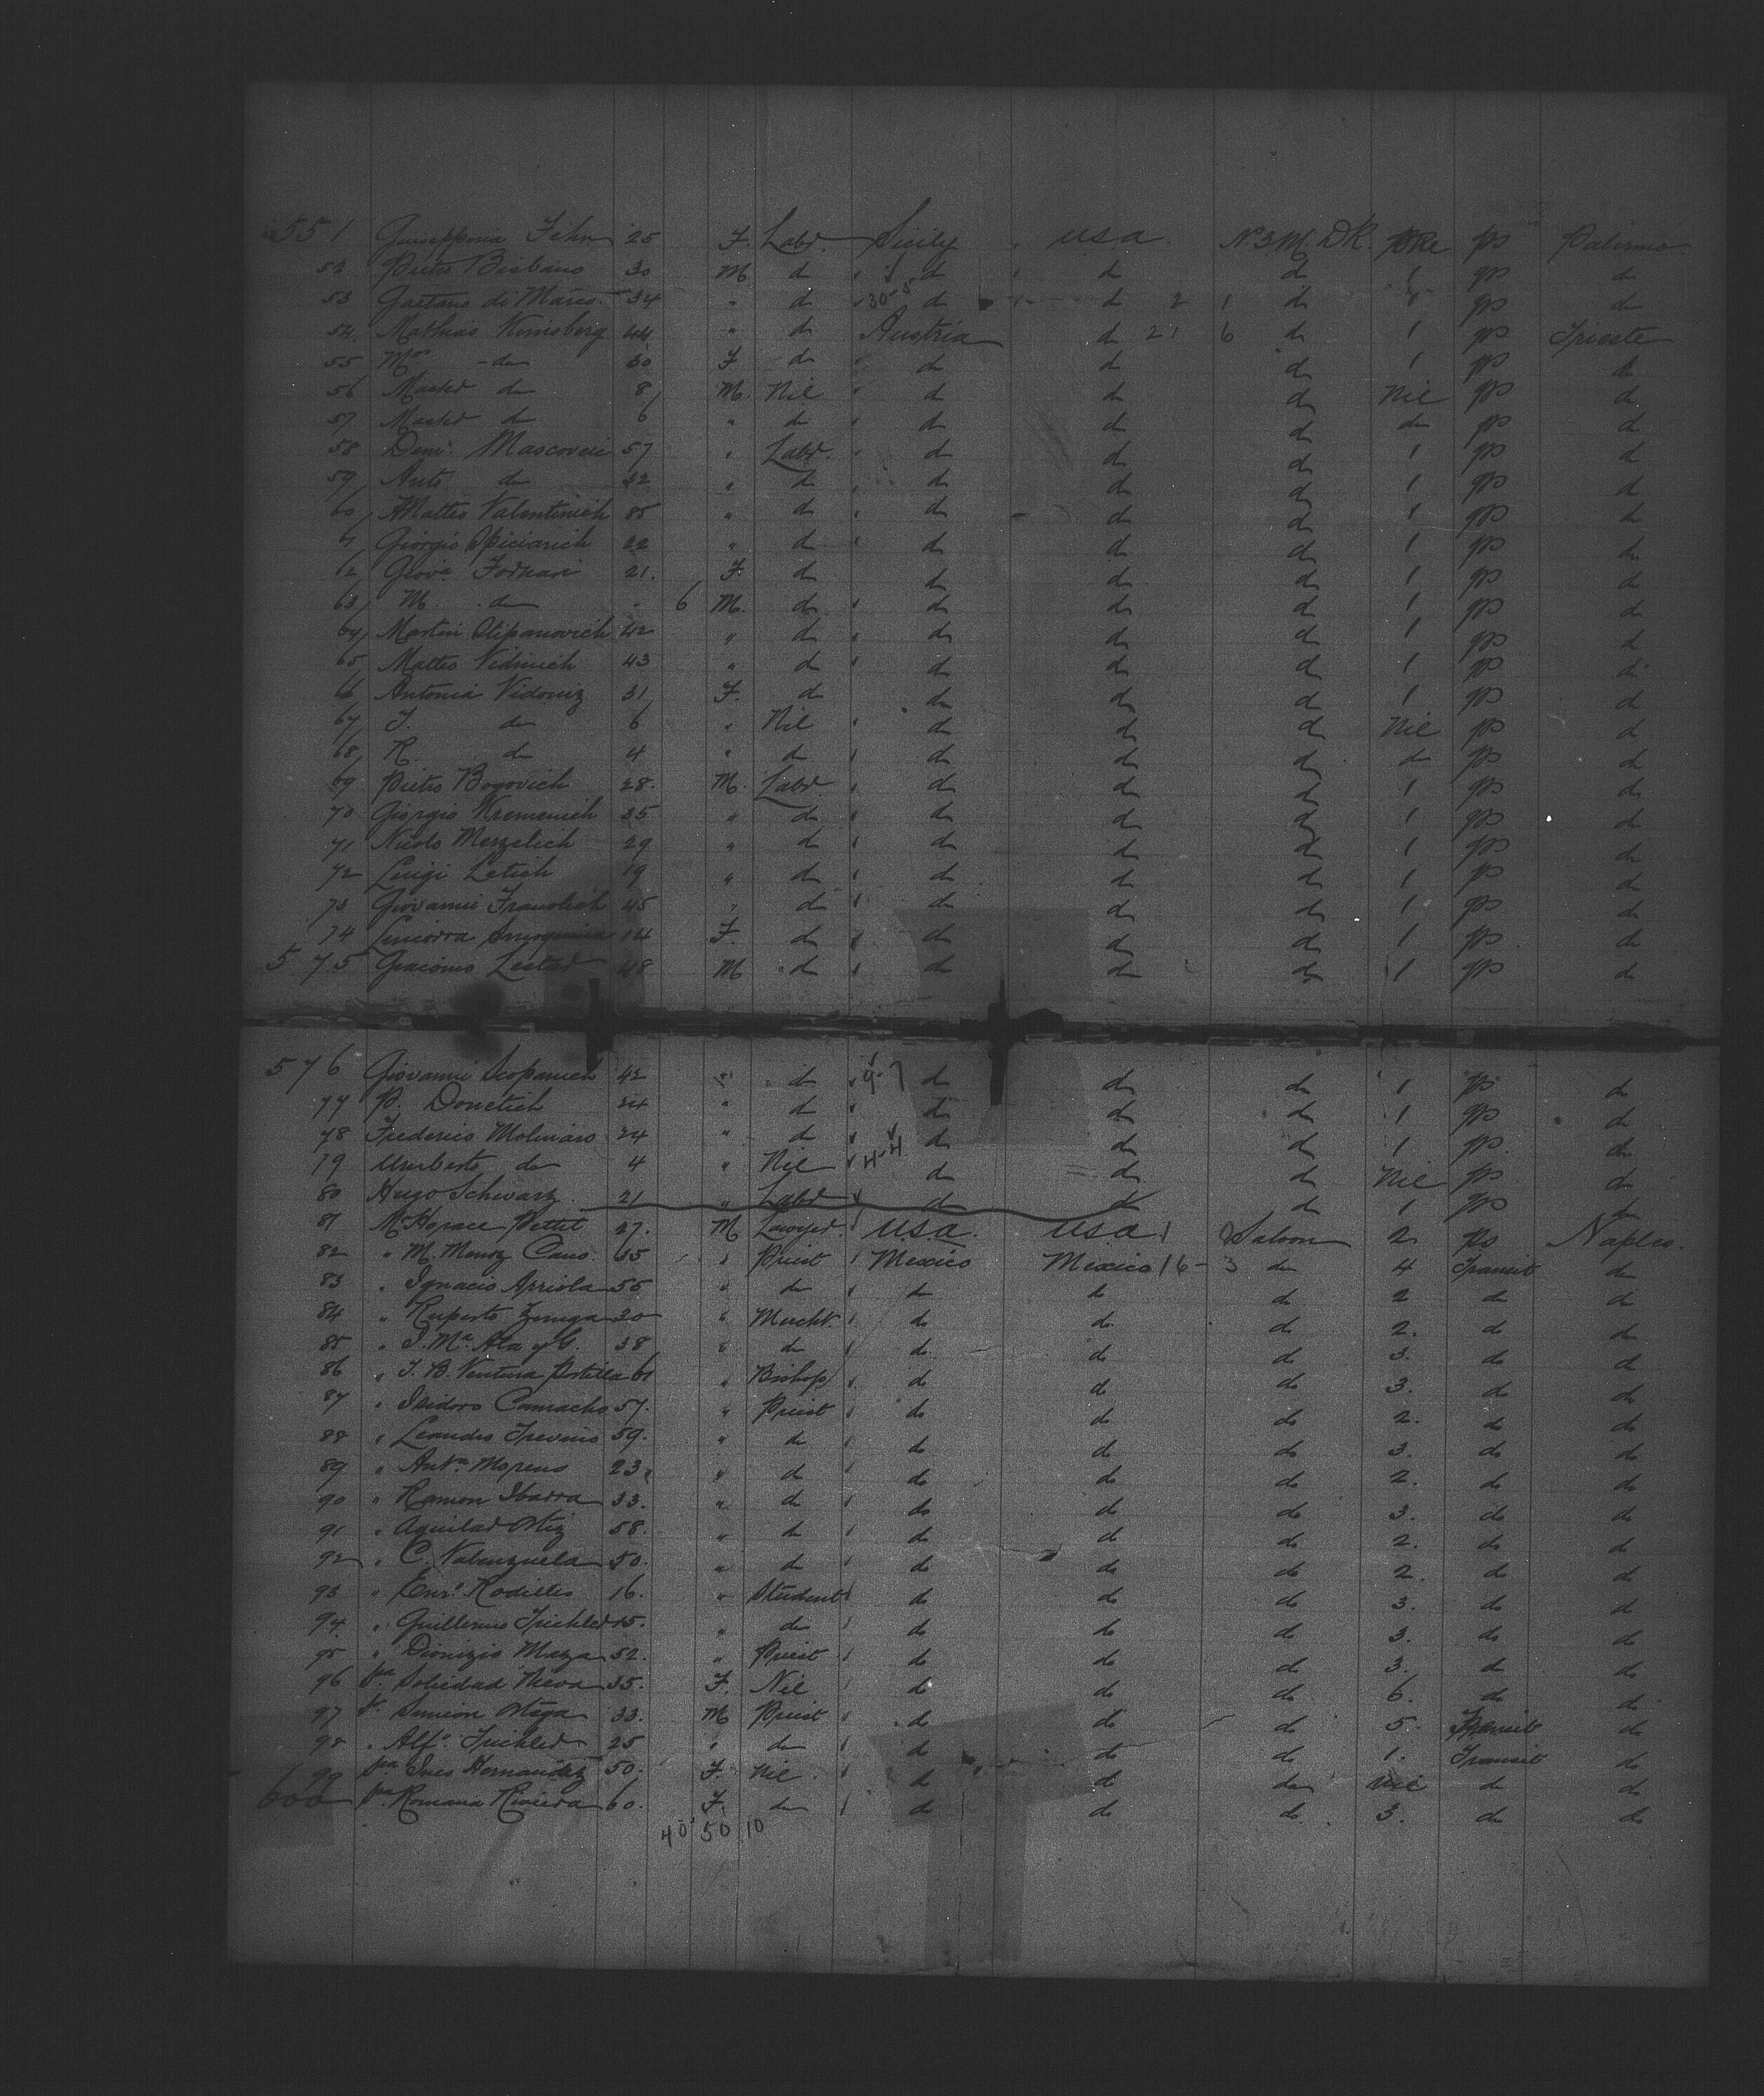 551 Giuseppina Fehr 25 F. Labr. Sicily usa. No 3 M. DK. pps Palermo
52 Pietro Bisbano 30 M d d d d 1 pp d
53 Gaetano di Marco 34 " d 30-5 d d 2 1 d 1 pp d
54 Mathias Kinisberg 44 " d Austria d 21 6 d 1 pp Trieste
55 Mrs do 30 F d d d d 1 pp d
56 Master do 8 M. Nil d d d Nil pp d
57 Master do 6 " do d d d do pp d
58 Mascovich 57 " Labr. d d d 1 pp d
59 Anto do 32 " d d d d 1 pp d
60 Matteo Valentinich 85 " d d d d 1 pp d
61 Giorgio Spiciarich 22 " d d d d 1 pp d
62 Giova Fornari 21. F d d d d 1 pp d
63 M. do - 6 M. d d d d 1 pp d
64 Martin Stipanovich 42 " d d d d 1 pp d
65 Matteo Vidinich 43 " d d d d 1 pp d
66 Antonia Vidoniz 31 F. d d d d 1 pp d
67 do 6 " Nil d d d Nil pp d
68 R. do 4 " do d d do do pp d
69 Pietro Bogovich 28. M. Labr. d d d 1 pp d
70 Giorgio Kremenich 35 " d d d d 1 pp d
71 Nicolo Merzelich 29 " d d d d 1 pp d
72 Luigi Letich 19 " d d d d 1 pp d
73 Giovanni Franolich 45 " d d d d 1 pp d
74 14 F. d d d d 1 pp d
575 Giacomo 48 M d d d d 1 pp d
576 Giovanni Scopanich 42 " d 9-7 d d d 1 pp d
77 P. Donetich 24 " d d d d 1 pp d
78 Frederico Molinaro 24 " d d d d 1 pp. d
79 Umberto do 4 " Nil 4-4 d d d Nil pp d
80 Hugo Schwarz. 21 " Labr d d d 1 pp d
81 Mr Horace Pettit 27. M Lawyer usa. usa 1 2 Saloon 2 ps Naples.
82 " M. Cano. 35 " Priest Mexico Mexico 16-3 do 4 Transit do
83 " Ignacio Arriola 55 " do do do do 2 do d
84 " Ruperto Zuniga 30 " Mercht. do do. do 2. do do
85 " J. Ma. Ata y G. 38 " do do do do 3. do do
86 " J. B. Ventura Portilla 61 " Bishop do do do 3. do do
87 " Isidoro Camacho 57. " Priest do do do 2. do do
88 " Leandro Trevino 59. " do do do do 3. do do
89 " Anto. Moreno 23 " do do do do 2. do do
90 " Ramon Ibarra 33. " do do do do 3. do do
91 " Aguilar Ortiz 58. " do do do do 2. do do
92 " C. Valenzuela 50. " do do do do 2. do do
93 " Enre. Rodilles 16. " Student do do do 3. do do
94 " Guillermo Trichler 15. " do do do do 3. do do
95 " Dionizio Maza 52. " Priest do do do 3. do do
96 Sra Soledad Nieva 35. F. Nil do do do 6. do do
97 Sr. Simeon Ortega 33. M Priest do do do 5. Transit do
98 " Alfo. Trichler 25 " do do do do 1. Transit do
99 Sra Ines Hernandez 50. F. Nil do do do Nil do do
600 Sra Romana Riviera 60. F. do do do do. 3. do do
40 50 10